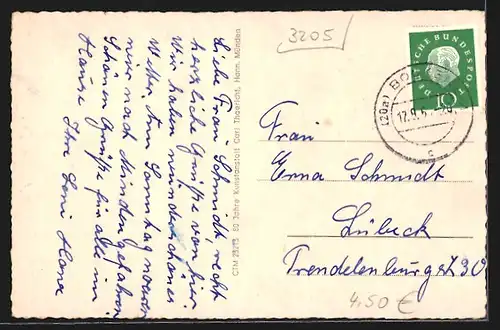 3205
DEUTSCHE BUNDESPOST
10
(20a) BO
17.9.5
c
Liebe Frau Schmidt recht
herzliche Grüße von hier
Wir haben wunderschönes
Wetter. Am Sonntag waren
wir nach Minden gefahren
Schönen Grüße für alle im
Hause Ihre Leni
CTM 80 Jahre Kunstanstalt Carl Thoericht, Hann. Münden
Frau
Erna Schmidt
Lübeck
Trendelenburgstr 30
4,50 €